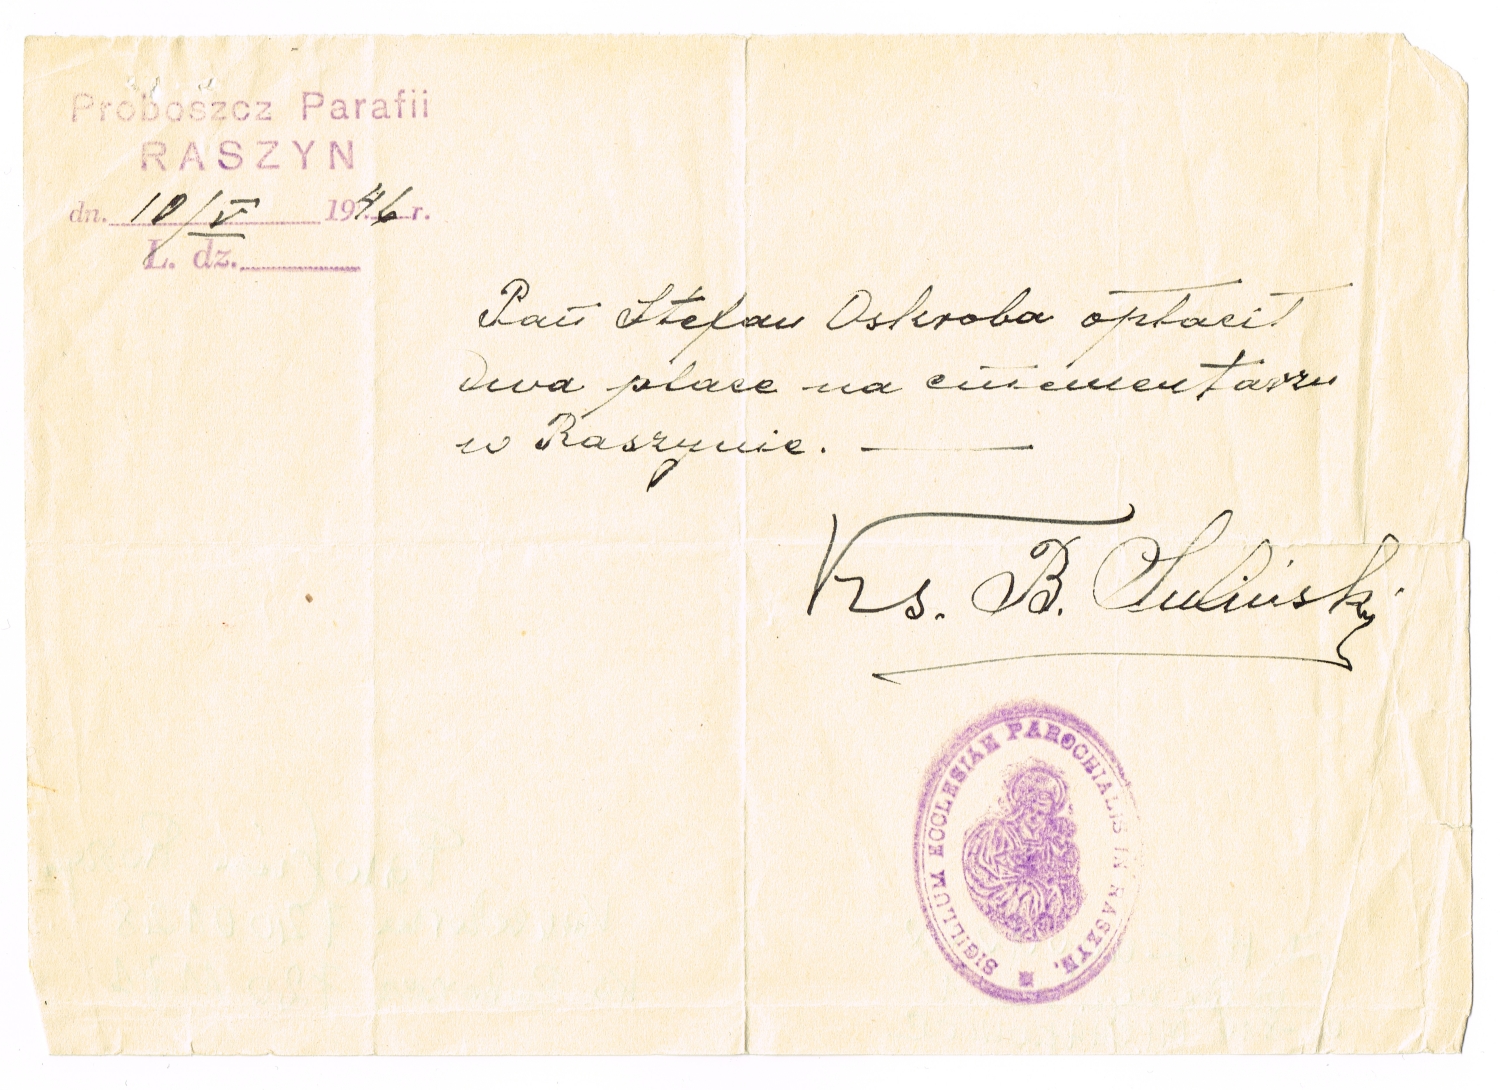 Proboszcz Parafii
RASZYN
dn. 10/V 1946 r.
L. dz.
Pan Stefan Oskroba opłacił
dwa place na cmementarzu
w Raszynie. —
Ks. B. Suliński
SIGILLUM ECCLESIAE PAROCHIALIS IN RASZYN.